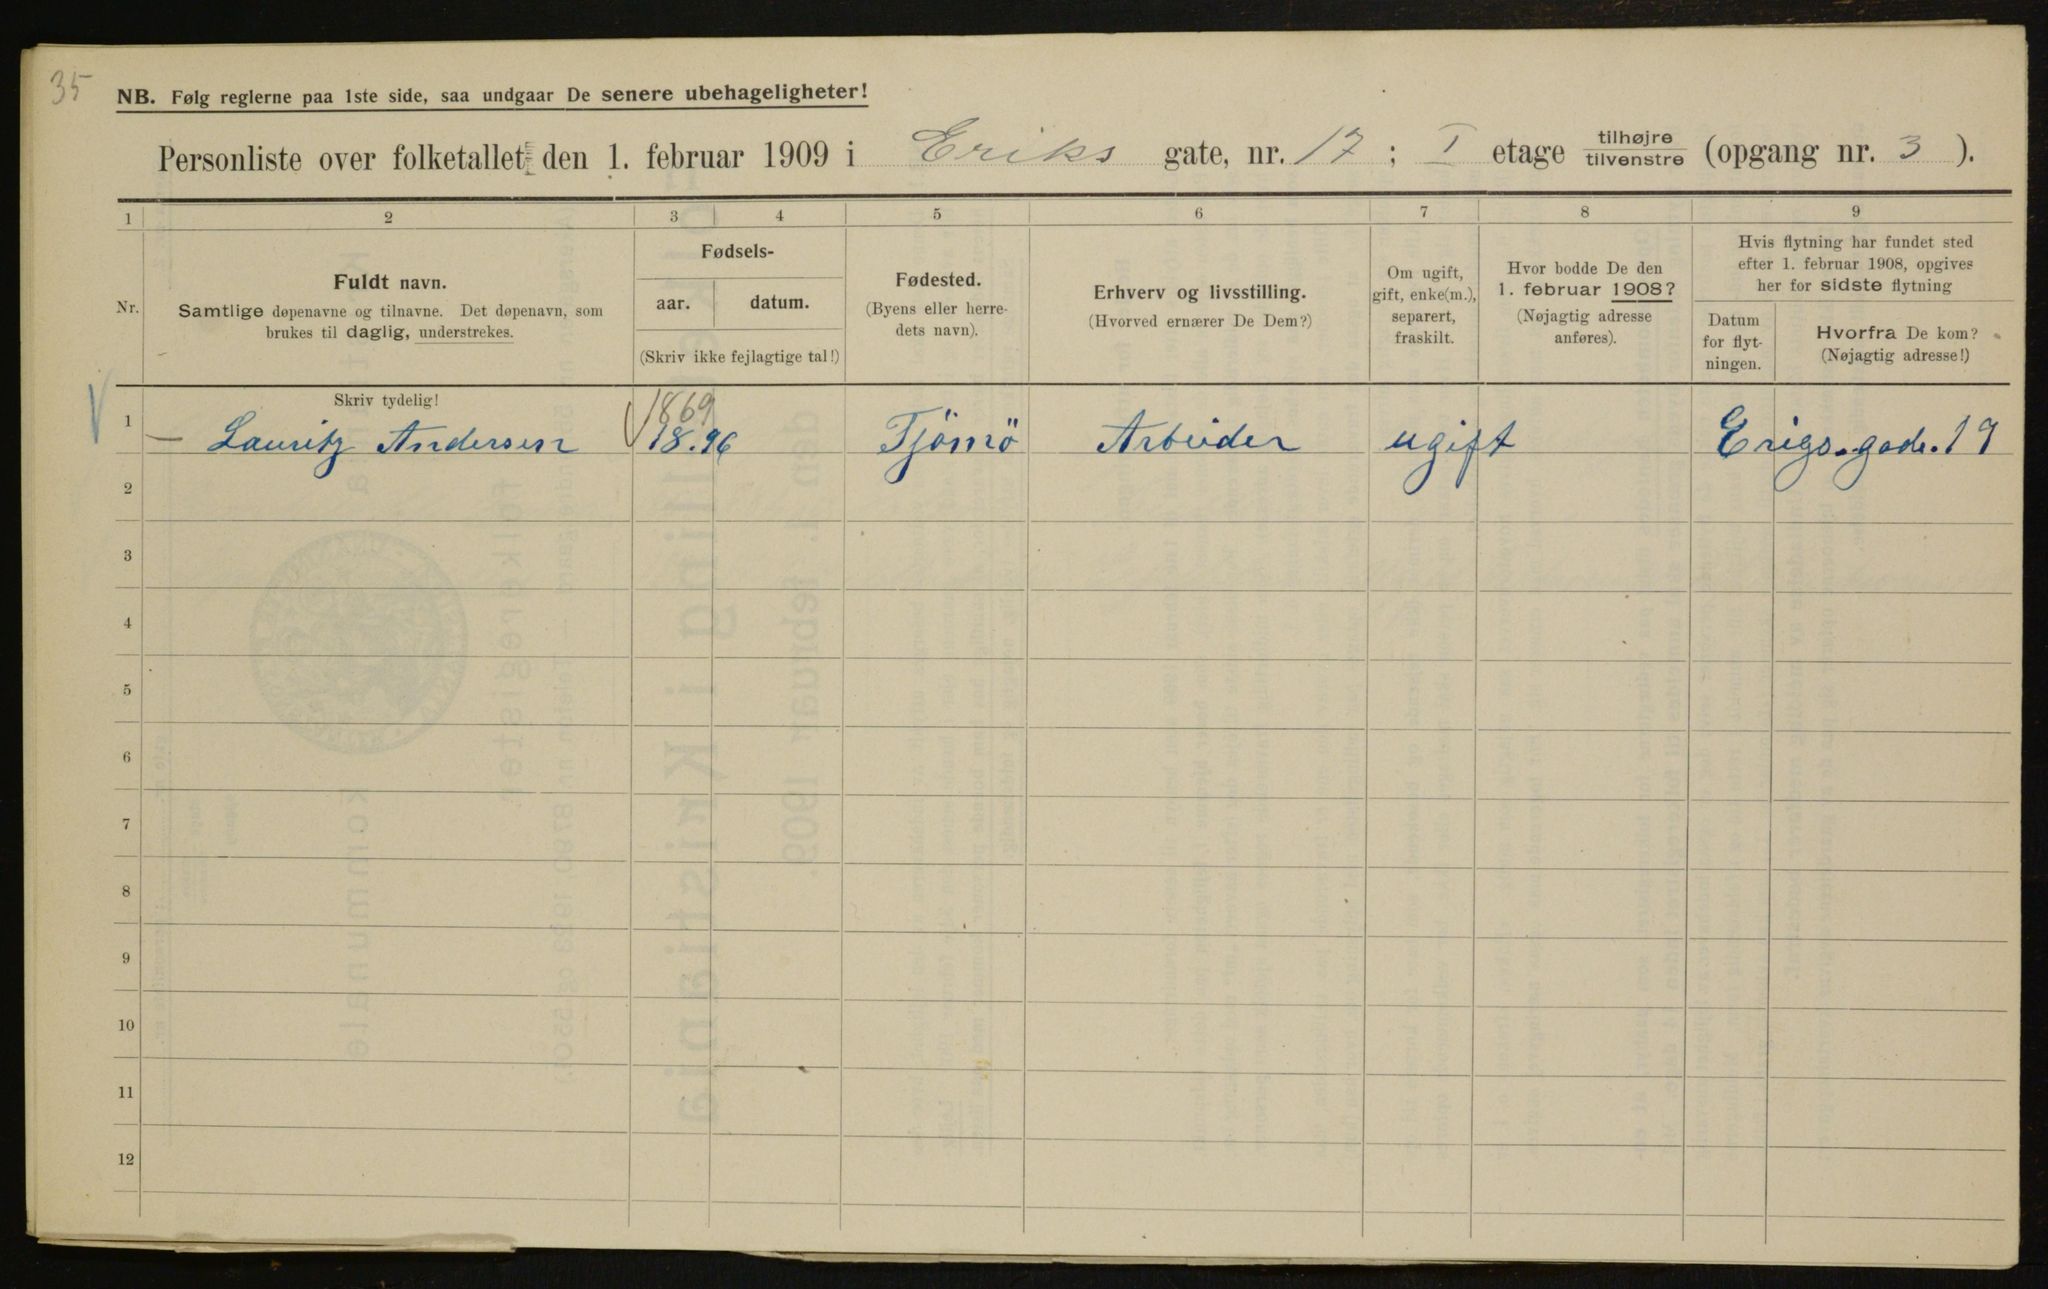 35
NB. Følg reglerne paa 1ste side, saa undgaar De senere ubehageligheter!
Personliste over folketallet den 1. februar 1909 i Eriks gate, nr. 17 ; I etage tilhøjre tilvenstre (opgang nr. 3 ).
1 2 3 4 5 6 7 8 9
Nr.
Fuldt navn.
Samtlige døpenavne og tilnavne. Det døpenavn, som
brukes til daglig, understrekes.
Fødsels-
aar. datum.
(Skriv ikke fejlagtige tal!)
Fødested.
(Byens eller herre-
dets navn).
Erhverv og livsstilling.
(Hvorved ernærer De Dem?)
Om ugift,
gift, enke(m.),
separert,
fraskilt.
Hvor bodde De den
1. februar 1908?
(Nøjagtig adresse
anføres).
Hvis flytning har fundet sted
efter 1. februar 1908, opgives
her for sidste flytning
Datum
for flyt-
ningen.
Hvorfra De kom?
(Nøjagtig adresse!)
Skriv tydelig!
1869
1 — Lauritz Andersen 18.96 Tjömö Arbeider ugift Erigs.gade.19
2
3
4
5
6
7
8
9
10
11
12